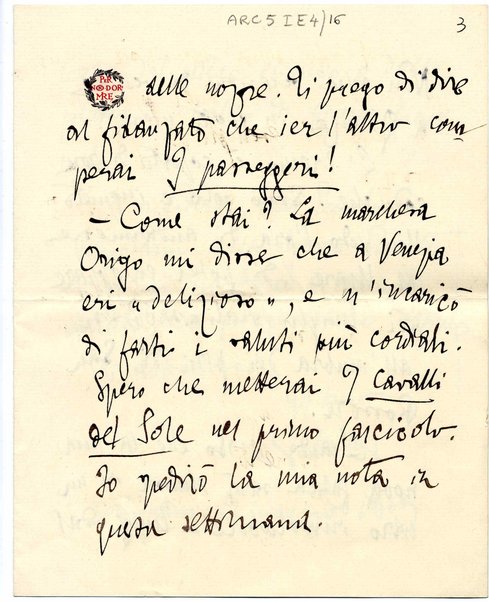 ARC 5 I E 4/16
3
PER
NON DOR
MIRE
delle nozze. Ti prego di dire
al fidanzato che ier l'altro com-
perai I passeggeri!
— Come stai? La marchesa
Origo mi disse che a Venezia
eri "delizioso", e m'incaricò
di farti i saluti più cordiali.
Spero che metterai I Cavalli
del Sole nel primo fascicolo.
Io spedirò la mia nota in
questa settimana.